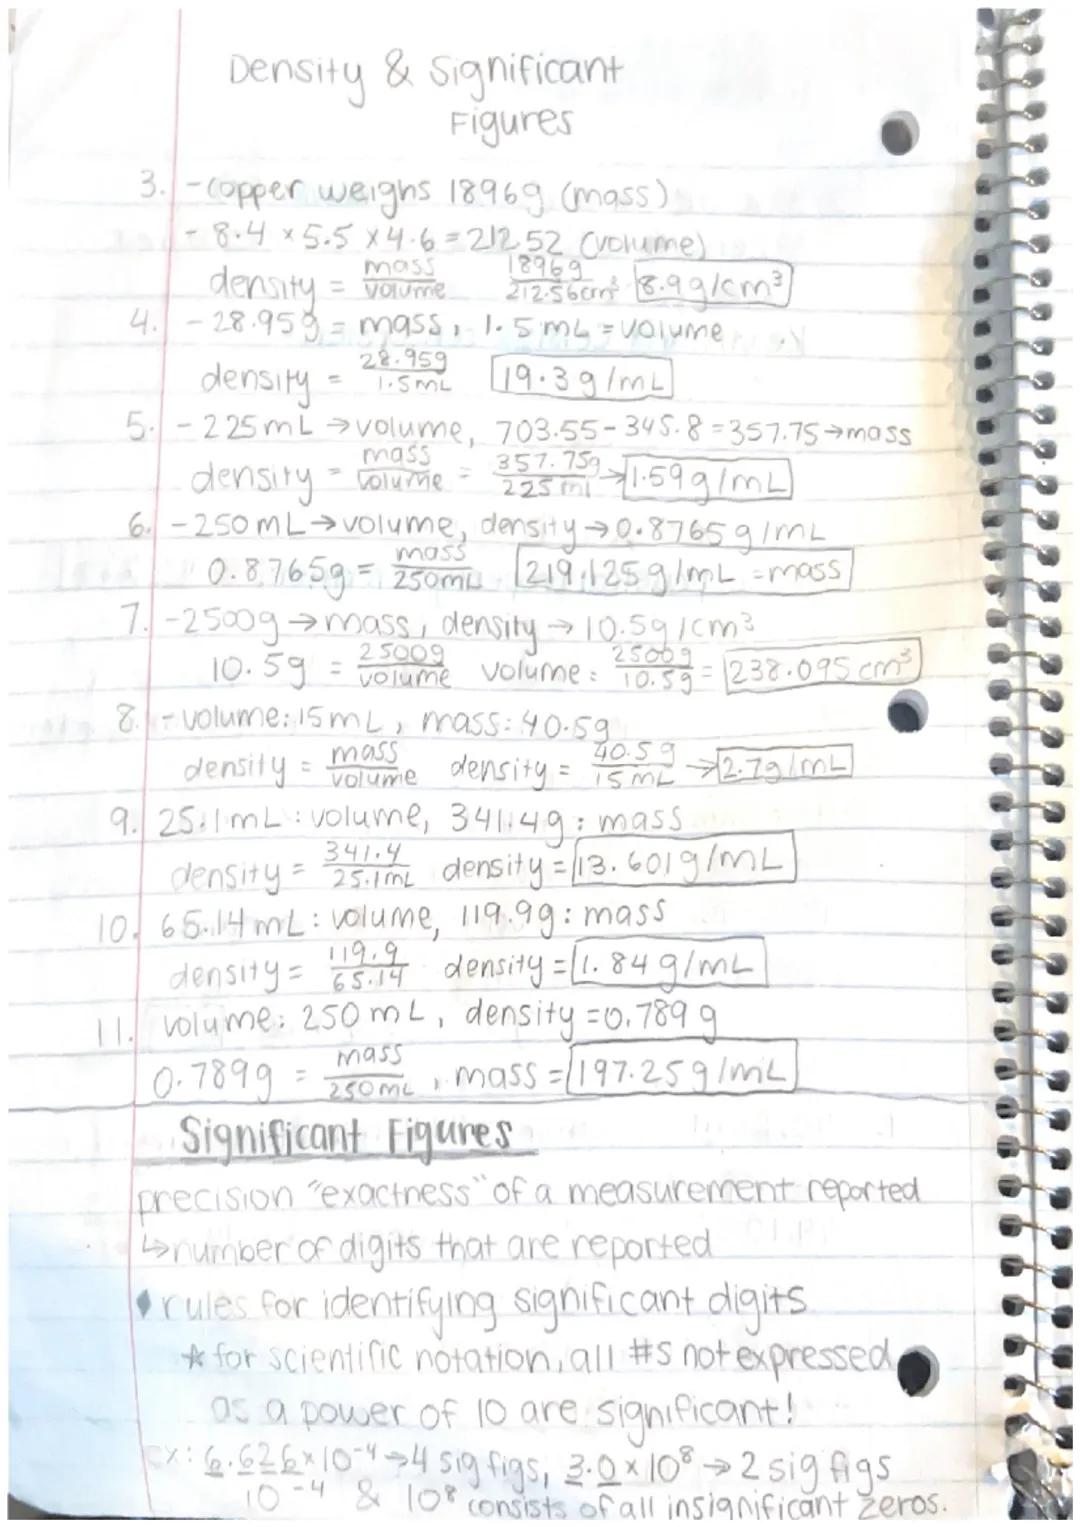 Density & Significant
Figures
3. - copper weighs 1896g (mass)
- 8.4 × 5.5 × 4.6 = 212.52 (volume)
density = mass/volume 1896g/212.56cm³ 8.9g/cm³
4. - 28.95g = mass, 1.5mL = volume
density = 28.95g/1.5mL 19.3g/mL
5. - 225mL → volume, 703.55 - 345.8 = 357.75 → mass
density = mass/volume = 357.75g/225ml → 1.59g/mL
6. - 250mL → volume, density → 0.8765g/mL
0.8765g = mass/250mL 219.125g/mL = mass
7. - 2500g → mass, density → 10.5g/cm³
10.5g = 2500g/volume volume: 2500g/10.5g = 238.095cm³
8. - volume: 15mL, mass: 40.5g
density = mass/volume density = 40.5g/15mL → 2.7g/mL
9. 25.1mL: volume, 341.4g: mass
density = 341.4/25.1mL density = 13.601g/mL
10. 65.14mL: volume, 119.9g: mass
density = 119.9/65.14 density = 1.84g/mL
11. volume: 250mL, density = 0.789g
0.789g = mass/250mL, mass = 197.25g/mL
Significant Figures
precision "exactness" of a measurement reported
↳ number of digits that are reported
♦ rules for identifying significant digits
* for scientific notation, all #s not expressed
as a power of 10 are significant!
Ex: 6.626×10⁻⁴ → 4 sig figs, 3.0×10⁸ → 2 sig figs
10⁻⁴ & 10⁸ consists of all insignificant zeros.